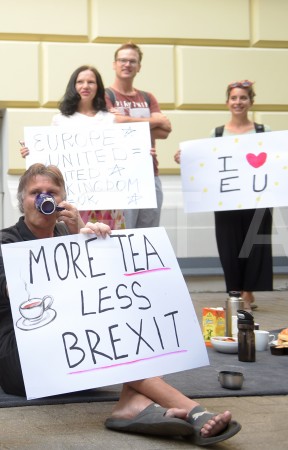 EUROPE
UNITED =
UNITED
KINGDOM
I ♥
EU
MORE TEA
LESS
BREXIT